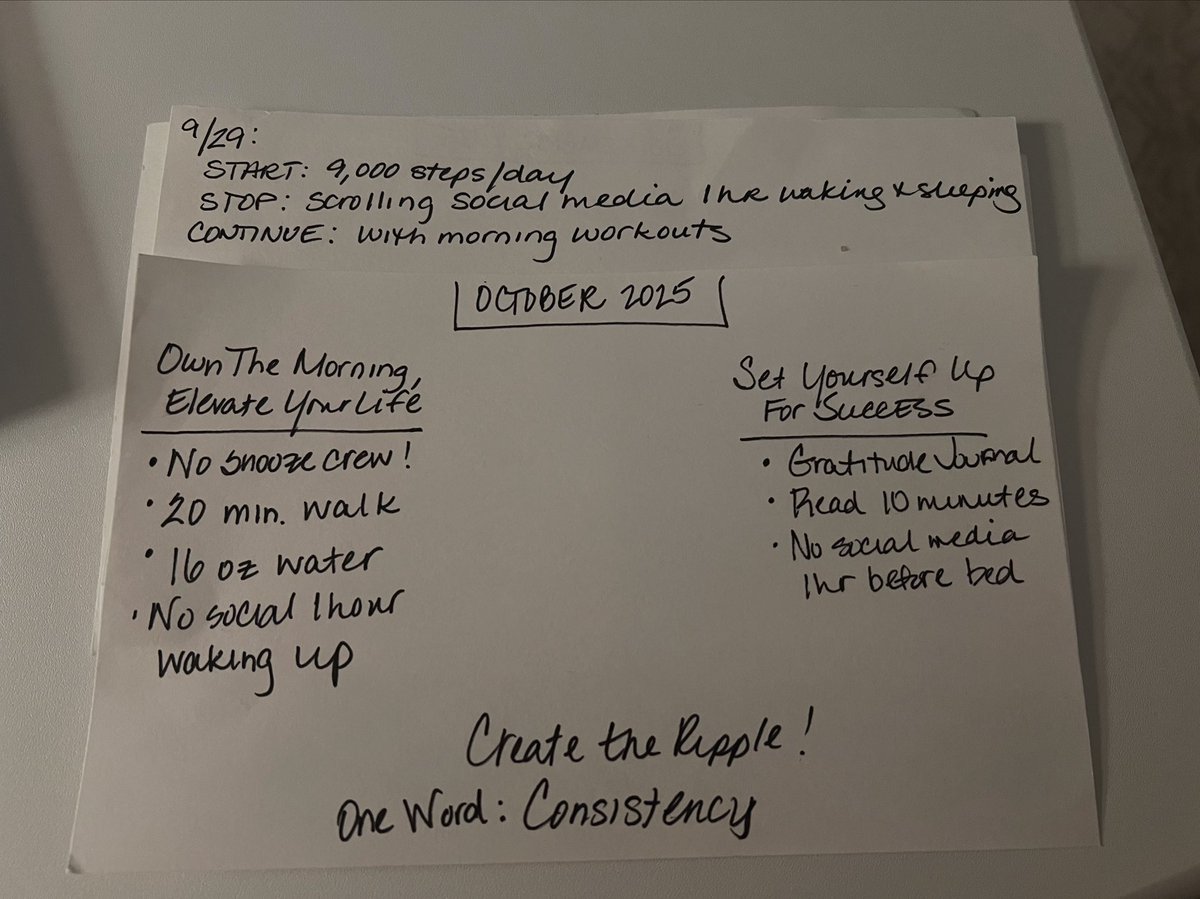 9/29:
START: 9,000 steps/day
STOP: scrolling social media 1hr waking & sleeping
CONTINUE: with morning workouts
OCTOBER 2025
Own The Morning,
Elevate Your Life
• No snooze crew!
• 20 min. walk
• 16 oz water
• No social 1 hour
waking up
Set Yourself Up
For SuccESS
• Gratitude Journal
• Read 10 minutes
• No social media
1hr before bed
Create the Ripple!
One Word: Consistency